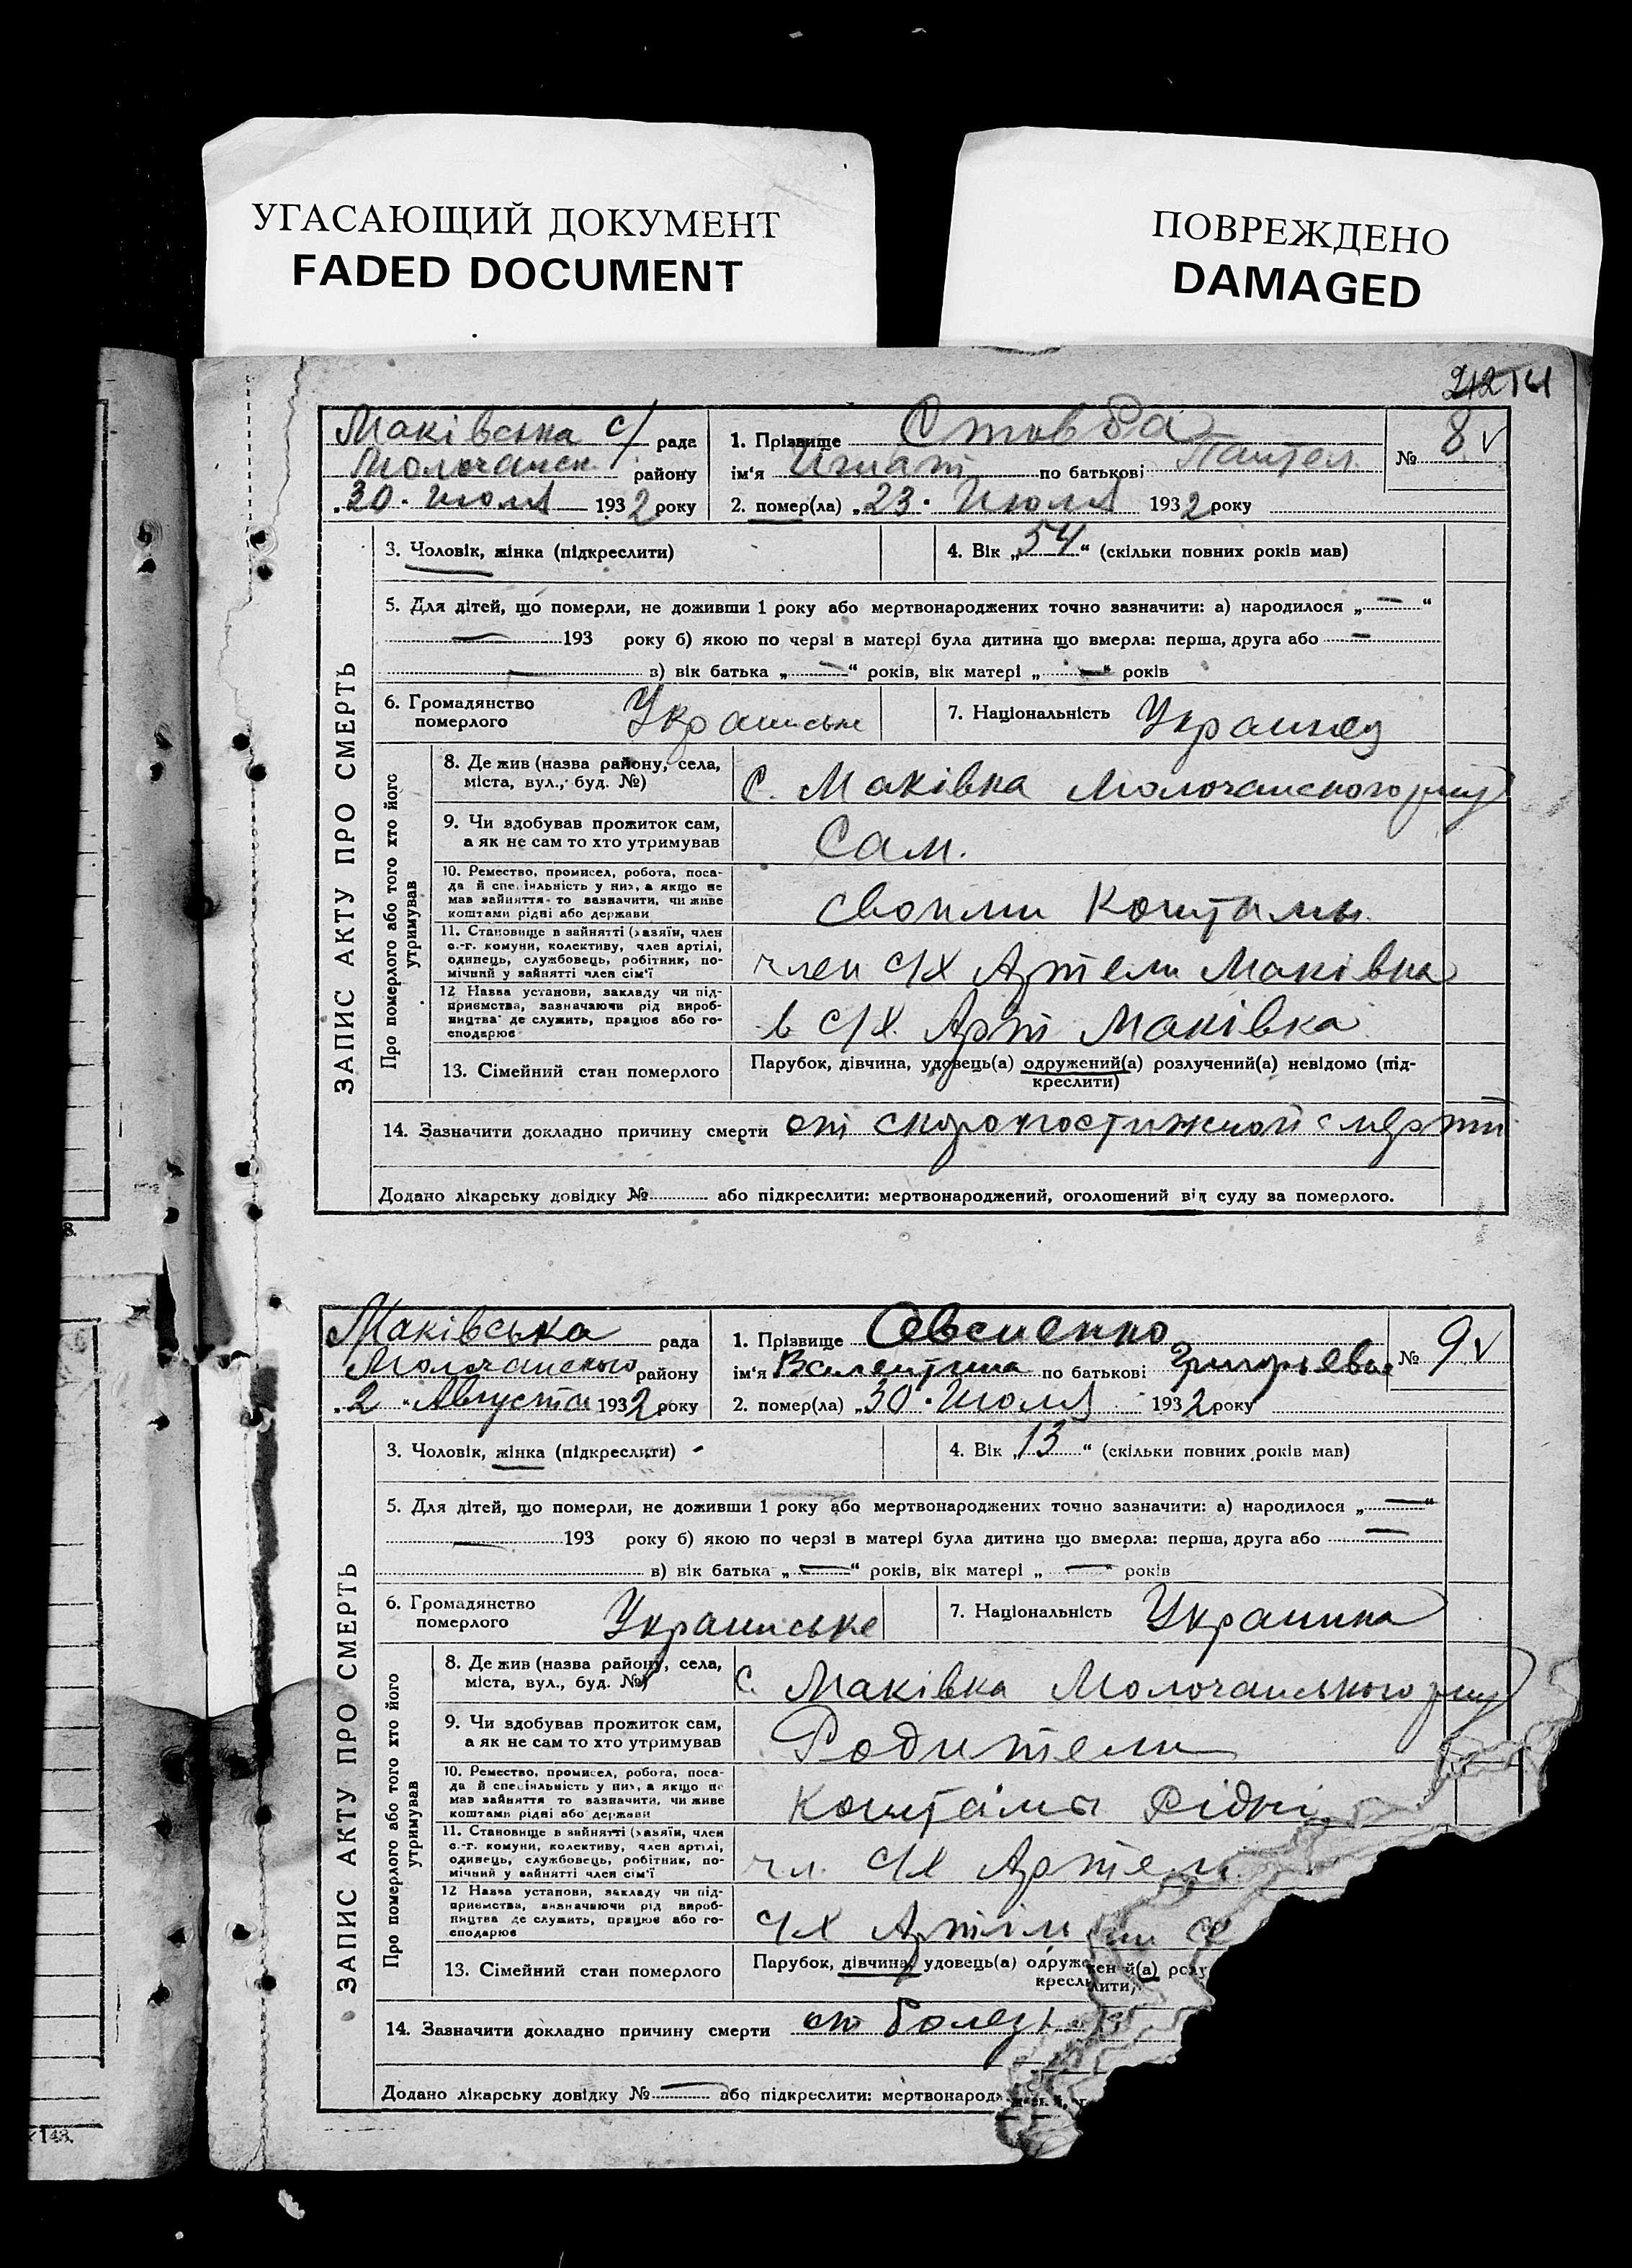 УГАСАЮЩИЙ ДОКУМЕНТ
FADED DOCUMENT
ПОВРЕЖДЕНО
DAMAGED
ЗАПИС АКТУ ПРО СМЕРТЬ
Маківська с/ рада
Молочанск. району
„30" Июля 1932 року
1. Прізвище Стовба
ім'я Игнат по батькові Пантел.
№ 8
2. помер(ла) „23" Июля 1932 року
3. Чоловік, жінка (підкреслити)
4. Вік „54" (скільки повних років мав)
5. Для дітей, що померли, не доживши 1 року або мертвонароджених точно зазначити: а) народилося „—"
— 193 року б) якою по черзі в матері була дитина що вмерла: перша, друга або —
— в) вік батька „—" років, вік матері „—" років
6. Громадянство померлого Украинське
7. Національність Украинец
Про померлого або того хто його утримував
8. Де жив (назва району, села,
міста, вул., буд. №)
С. Маківка Молочанского р-ну
9. Чи здобував прожиток сам,
а як не сам то хто утримував
Сам.
10. Ремество, промисел, робота, поса-
да й спеціяльність у них, а якщо не
мав зайняття то зазначити, чи живе
коштами рідні або держави
своими Коштами
11. Становище в зайнятті (хазяїн, член
с.-г. комуни, колективу, член артілі,
одинець, службовець, робітник, по-
мічний у зайнятті член сім'ї
член с/х Артели Маківка
12 Назва установи, закладу чи під-
приємства, зазначаючи рід вироб-
ництва де служить, працює або го-
сподарює
в с/х. Арт Маківка
13. Сімейний стан померлого
Парубок, дівчина, удовець(а) одружений(а) розлучений(а) невідомо (під-
креслити)
14. Зазначити докладно причину смерти от скоропостижной смерти
Додано лікарську довідку № або підкреслити: мертвонароджений, оголошений від суду за померлого.
ЗАПИС АКТУ ПРО СМЕРТЬ
Маківська рада
Молочанского району
„2" Августа 1932 року
1. Прізвище Овсиенко
ім'я Валентина по батькові Григорьевна
№ 9
2. помер(ла) „30" Июля 1932 року
3. Чоловік, жінка (підкреслити)
4. Вік „13" (скільки повних років мав)
5. Для дітей, що померли, не доживши 1 року або мертвонароджених точно зазначити: а) народилося „—"
— 193 року б) якою по черзі в матері була дитина що вмерла: перша, друга або —
в) вік батька „—" років, вік матері „—" років
6. Громадянство померлого Украинське
7. Національність Украинка
Про померлого або того хто його утримував
8. Де жив (назва району, села,
міста, вул., буд. №)
С. Маківка Молочанського р-ну
9. Чи здобував прожиток сам,
а як не сам то хто утримував
Родители
10. Ремество, промисел, робота, поса-
да й спеціяльність у них, а якщо не
мав зайняття то зазначити, чи живе
коштами рідні або держави
Коштами Рідні
11. Становище в зайнятті (хазяїн, член
с.-г. комуни, колективу, член артілі,
одинець, службовець, робітник, по-
мічний у зайнятті член сім'ї
чл. с/х Артели
12 Назва установи, закладу чи під-
приємства, визначаючи рід вироб-
ництва де служить, працює або го-
сподарює
с/х Артіли
13. Сімейний стан померлого
Парубок, дівчина, удовець(а) одружений(а) розлу
креслити)
14. Зазначити докладно причину смерти от болезн
Додано лікарську довідку № — або підкреслити: мертвонародж